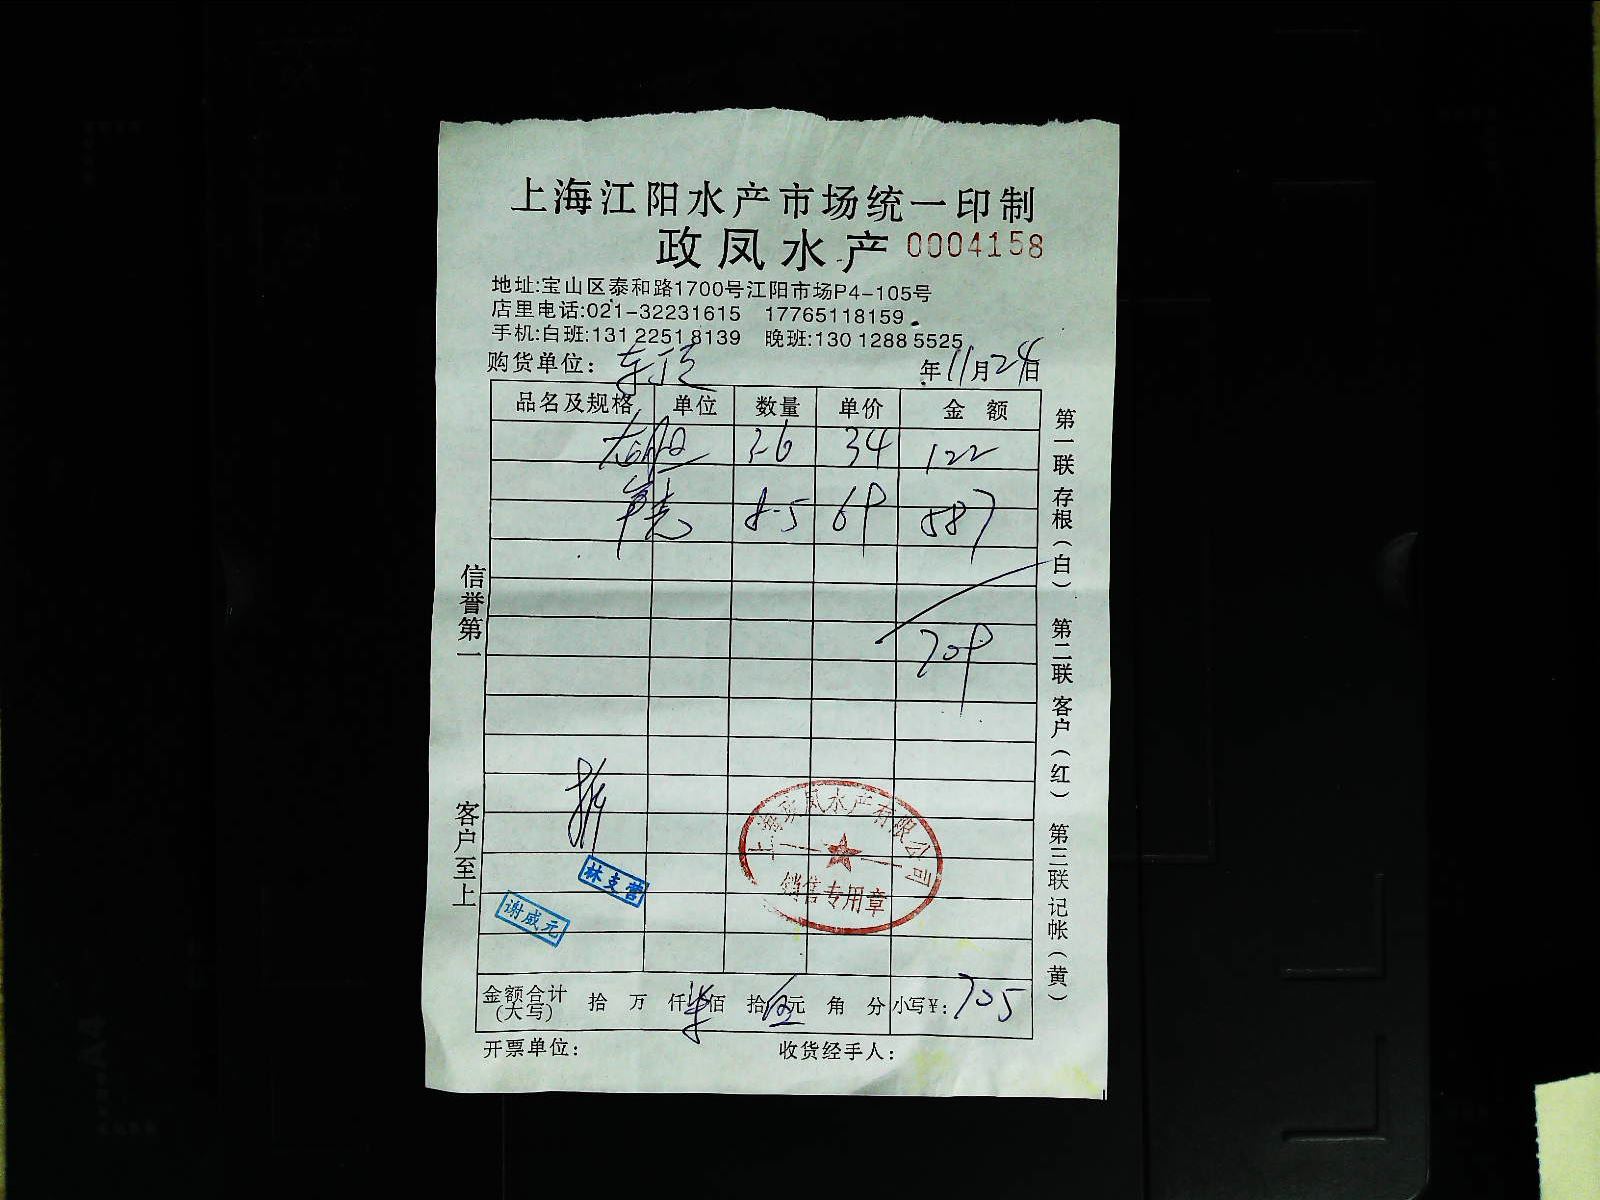 上海江阳水产市场统一印制
政凤水产 0004158
地址:宝山区泰和路1700号江阳市场P4-105号
店里电话:021-32231615 17765118159
手机:白班:131 2251 8139 晚班:130 1288 5525
购货单位: 年11月24日
品名及规格 单位 数量 单价 金额
3.6 34 122
8.5 69 587
709
金额合计(大写) 拾 万 仟柒佰 拾伍元 角 分 小写¥: 705
开票单位: 收货经手人:
信誉第一 客户至上
第一联 存根(白) 第二联 客户(红) 第三联 记帐(黄)
上海政凤水产有限公司
销售专用章
林支营
谢威元